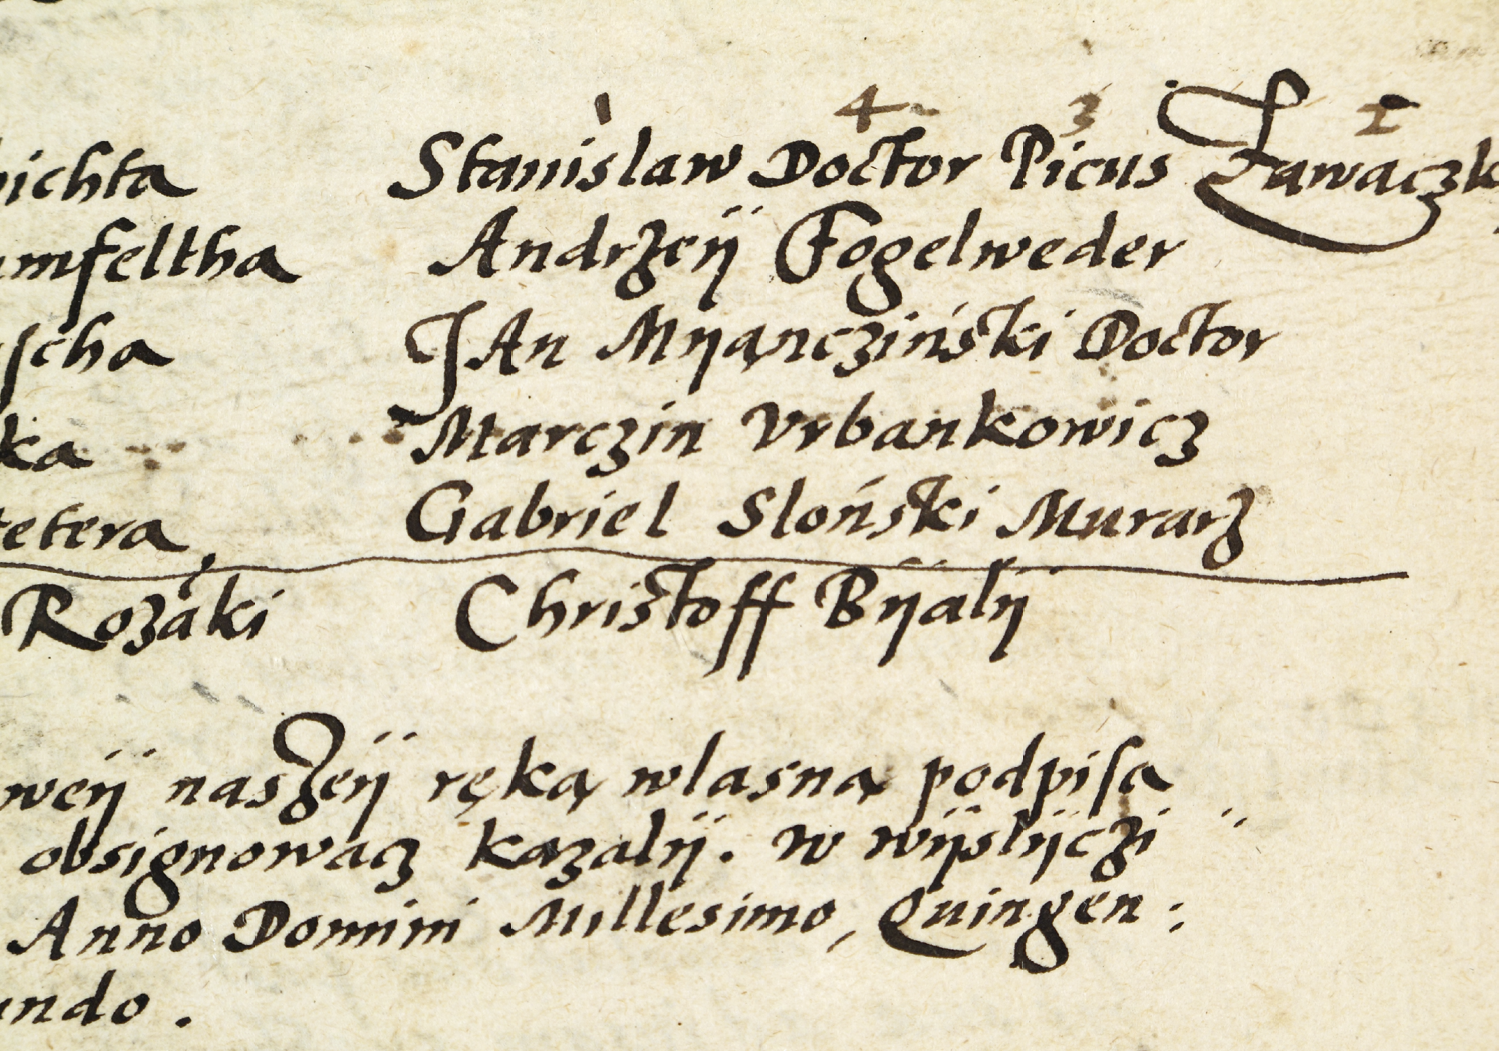 4 3 1
bichta Stanislaw Doctor Picus Zawaczk
mfeltha Andrzeÿ Fogelweder
scha JAn Mÿanczinski Doctor
ka Marczin Vrbankowicz
etera, Gabriel Sloński Murarz
Roząki Christoff Bÿalÿ
weÿ naszeÿ ręką wlasną podpisa
obsignowacz kazalÿ. w wÿslÿczi
Anno Domini Millesimo, Quingen:
ndo.